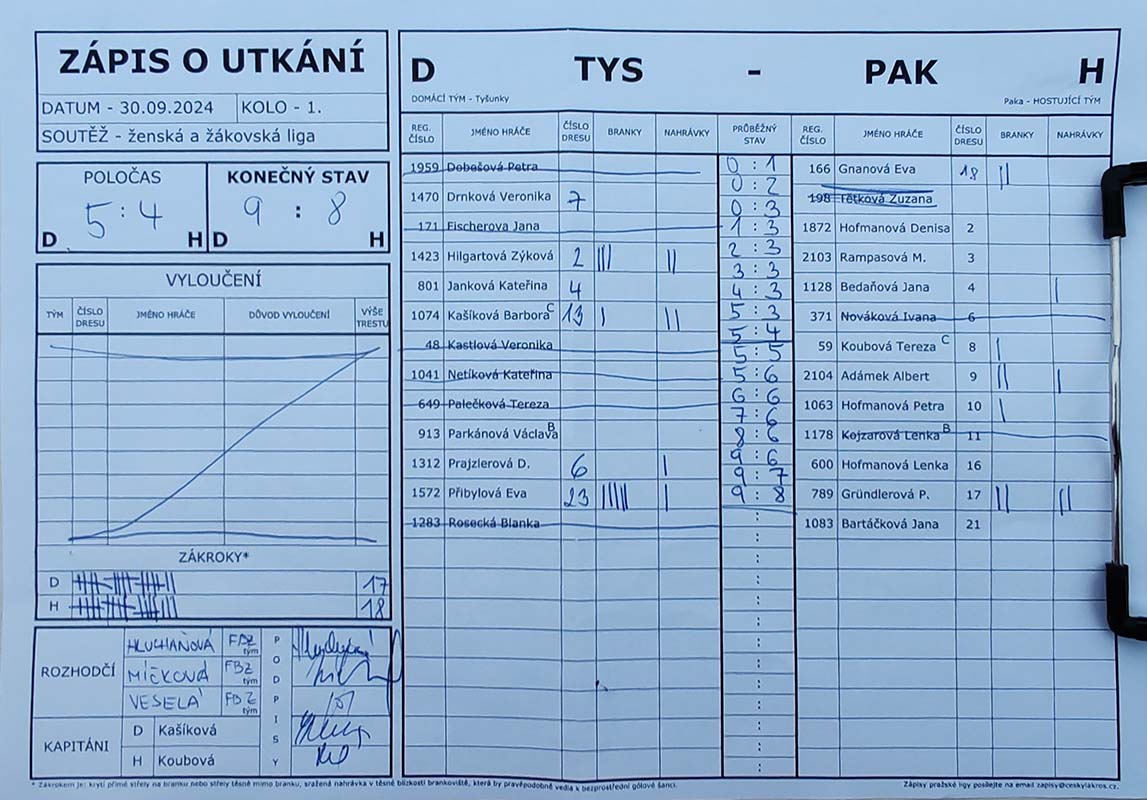 ZÁPIS O UTKÁNÍ
DATUM - 30.09.2024 KOLO - 1.
SOUTĚŽ - ženská a žákovská liga
POLOČAS KONEČNÝ STAV
5 : 4 9 : 8
D H D H
VYLOUČENÍ
TÝM ČÍSLO DRESU JMÉNO HRÁČE DŮVOD VYLOUČENÍ VÝŠE TRESTU
ZÁKROKY*
D 17
H 18
ROZHODČÍ
HLUCHAŇOVÁ FBZ tým
MÍČKOVÁ FBZ tým
VESELÁ FBZ tým
PODPISY
KAPITÁNI
D Kašíková
H Koubová
D TYS - PAK H
DOMÁCÍ TÝM - Tyšunky Paka - HOSTUJÍCÍ TÝM
REG. ČÍSLO JMÉNO HRÁČE ČÍSLO DRESU BRANKY NAHRÁVKY PRŮBĚŽNÝ STAV REG. ČÍSLO JMÉNO HRÁČE ČÍSLO DRESU BRANKY NAHRÁVKY
1959 Dobešová Petra
1470 Drnková Veronika 7
171 Fischerova Jana
1423 Hilgartová Zýková 2 ||| ||
801 Janková Kateřina 4
1074 Kašíková Barbora C 13 | ||
48 Kastlová Veronika
1041 Netíková Kateřina
649 Palečková Tereza
913 Parkánová Václava B
1312 Prajzlerová D. 6 |
1572 Přibylová Eva 23 ||||| |
1283 Rosecká Blanka
0 : 1
0 : 2
0 : 3
1 : 3
2 : 3
3 : 3
4 : 3
5 : 3
5 : 4
5 : 5
5 : 6
6 : 6
7 : 6
8 : 6
9 : 6
9 : 7
9 : 8
166 Gnanová Eva 18 ||
198 Tětková Zuzana
1872 Hofmanová Denisa 2
2103 Rampasová M. 3
1128 Bedaňová Jana 4 |
371 Nováková Ivana 6
59 Koubová Tereza C 8 |
2104 Adámek Albert 9 || |
1063 Hofmanová Petra 10 |
1178 Kojzarová Lenka B 11
600 Hofmanová Lenka 16
789 Gründlerová P. 17 || ||
1083 Bartáčková Jana 21
* Zákrokem je: krytí přímé střely na branku nebo střely těsně mimo branku, sražená nahrávka v těsné blízkosti brankoviště, která by pravěpodobně vedla k bezprostřední gólové šanci.
Zápisy pražské ligy posílejte na email zapisy@ceskylakros.cz.